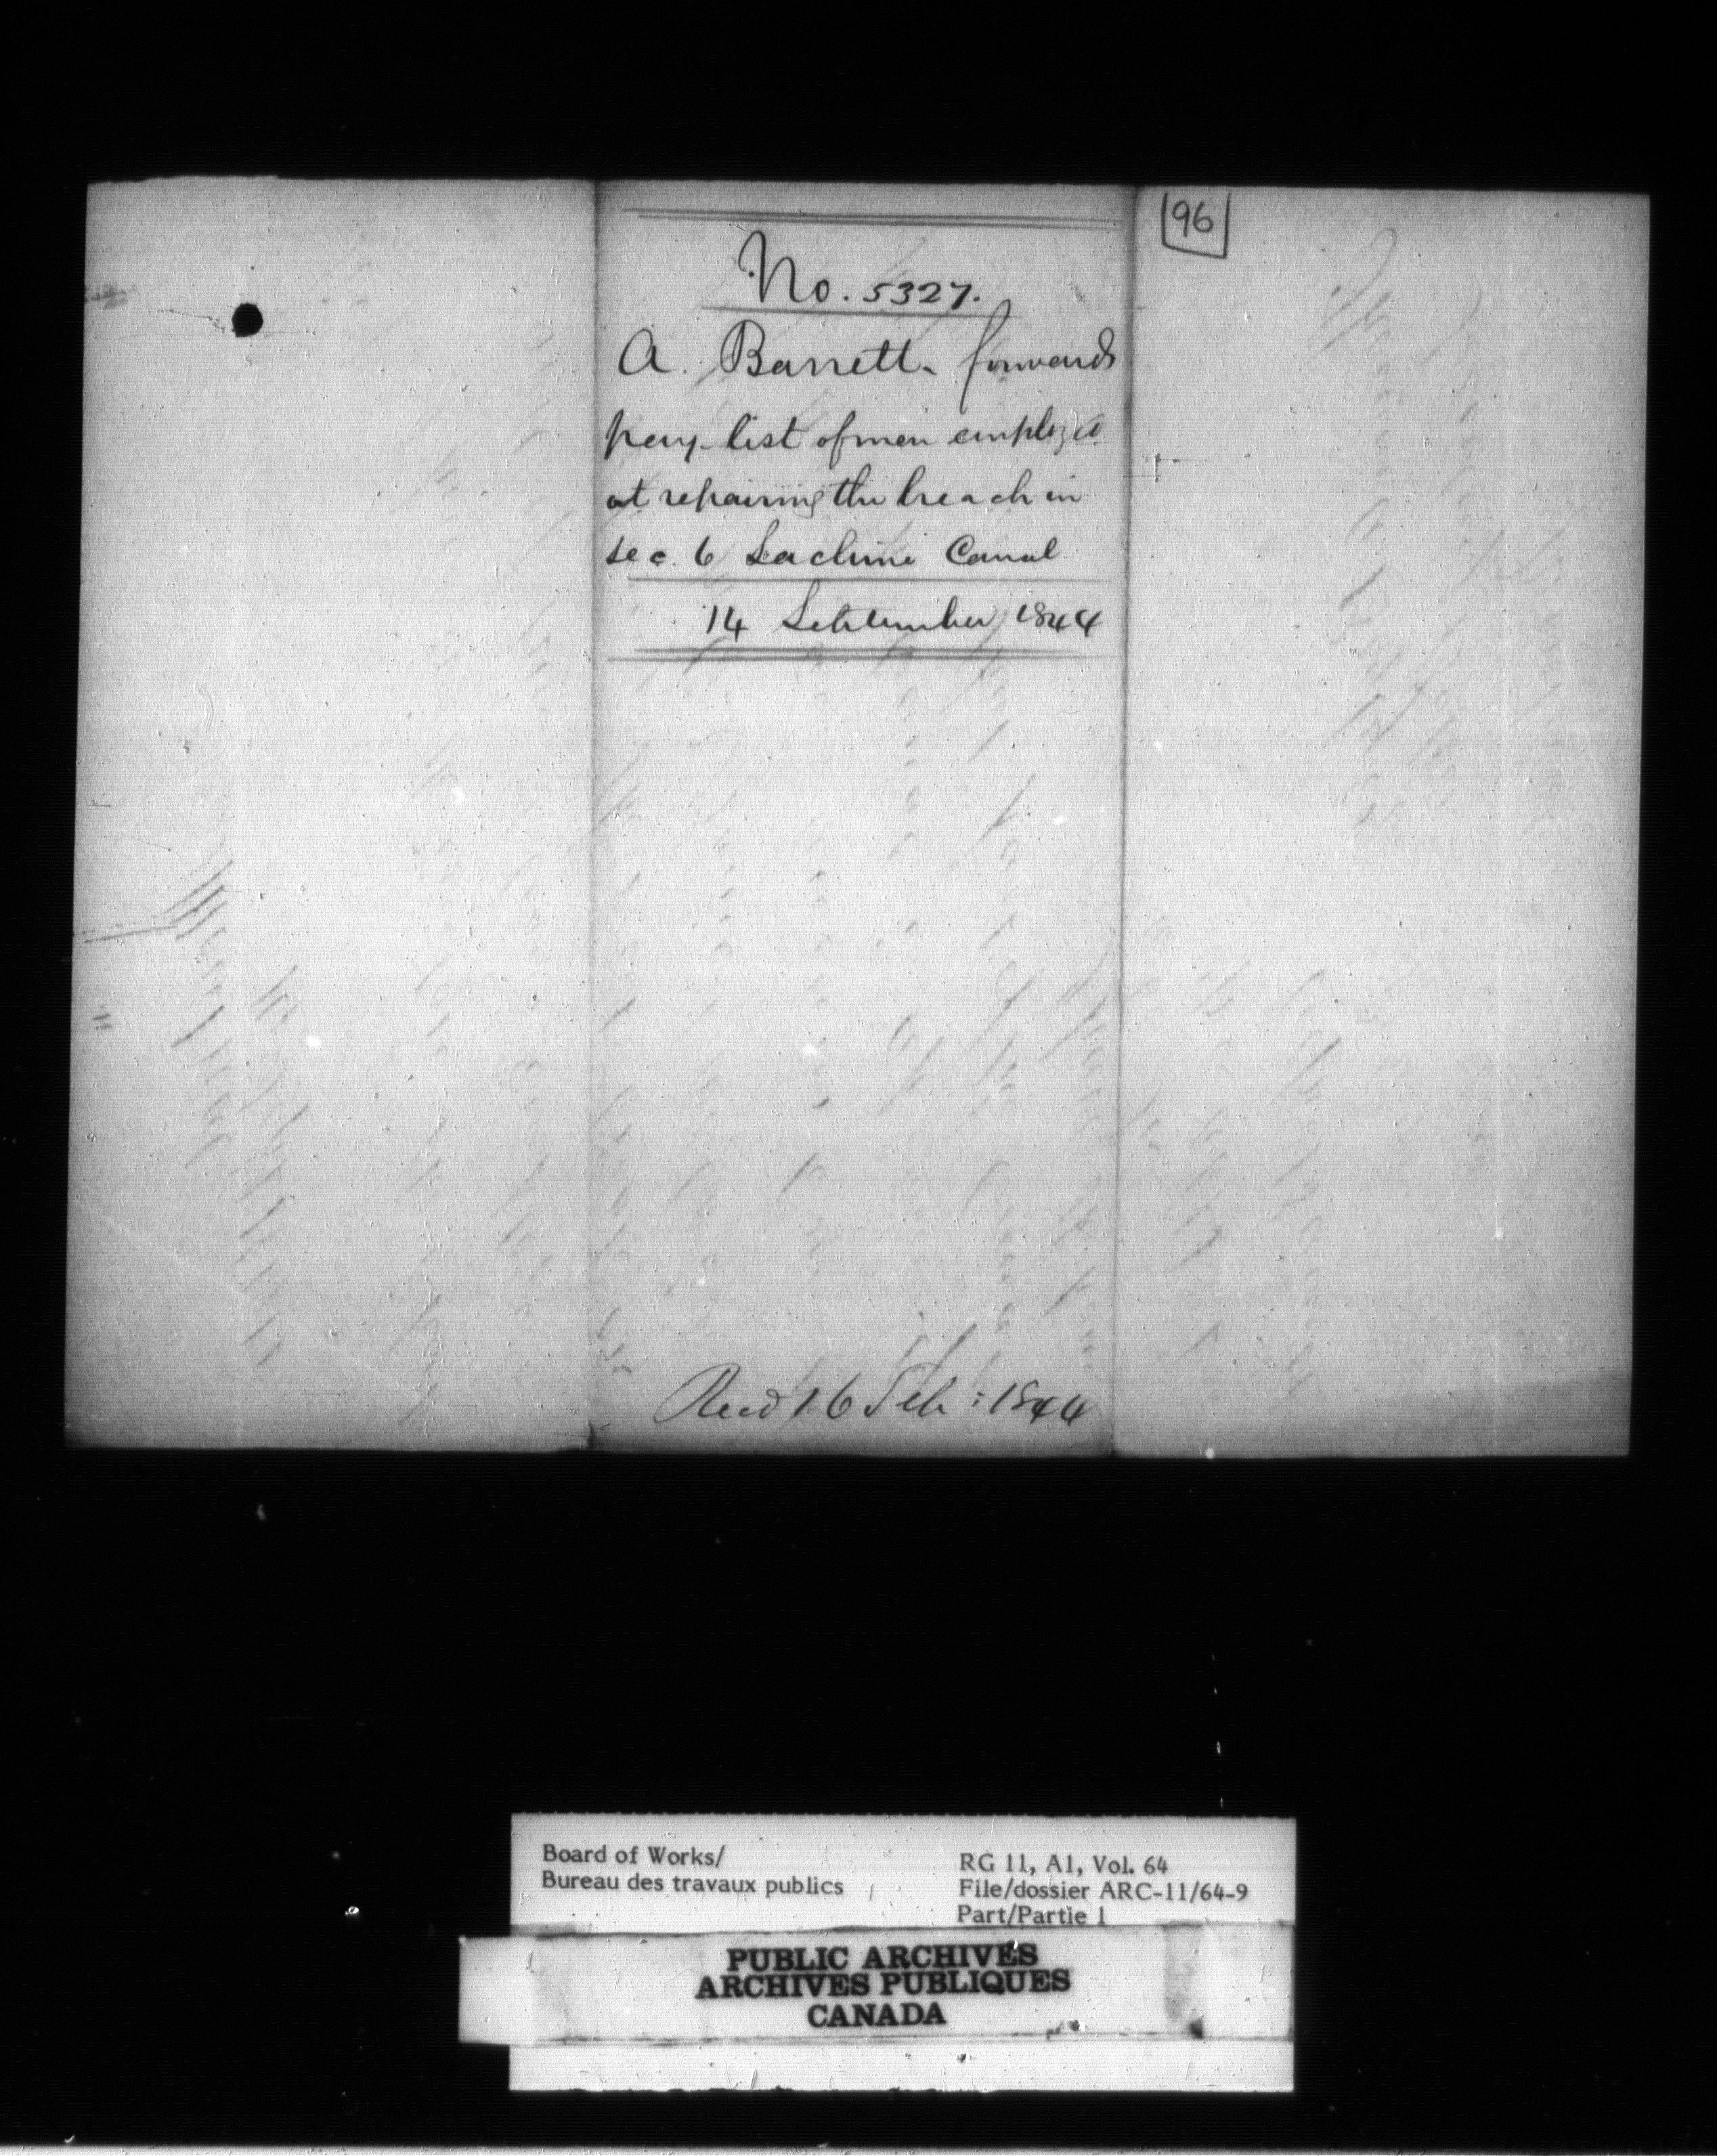 96
No. 5327.
A. Barrett. forwards
pay-list of men employed
at repairing the breach in
sec. 6 Lachine Canal
14 September 1844
Recd 16 Sep: 1844
Board of Works/
Bureau des travaux publics
RG 11, A1, Vol. 64
File/dossier ARC-11/64-9
Part/Partie 1
PUBLIC ARCHIVES
ARCHIVES PUBLIQUES
CANADA